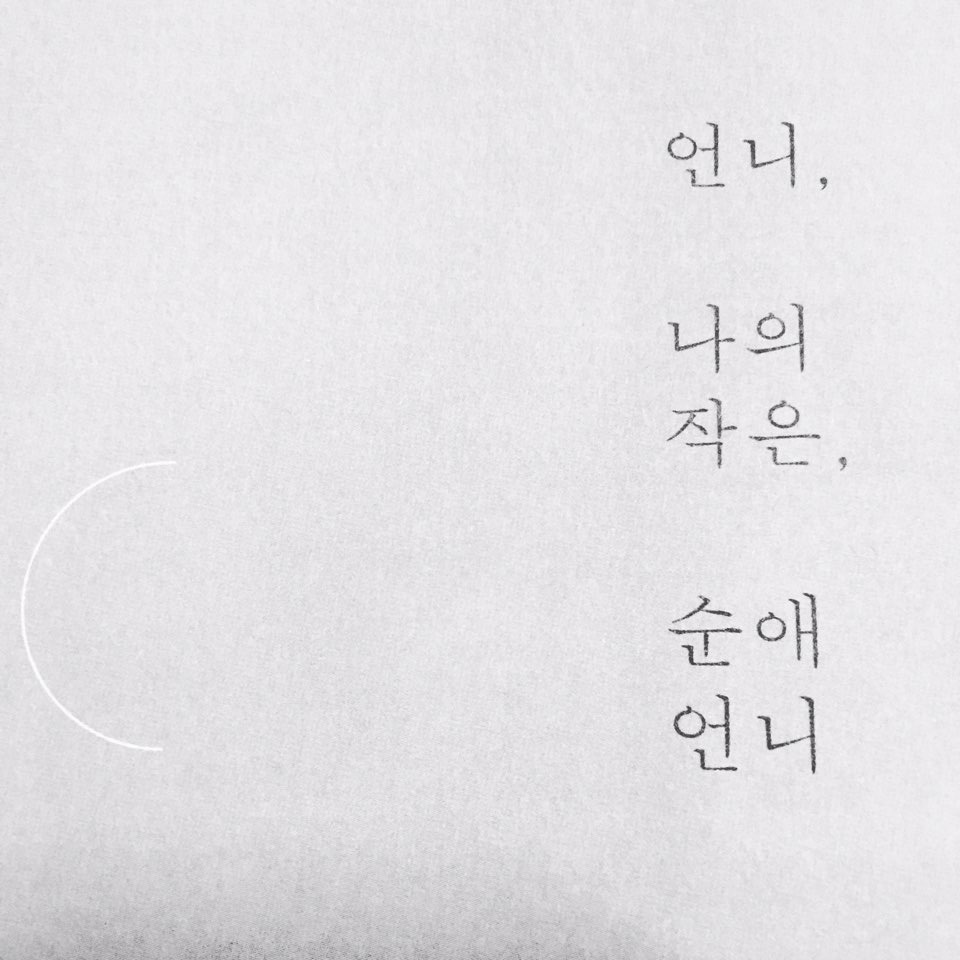 언니,
나의
작은,
순애
언니